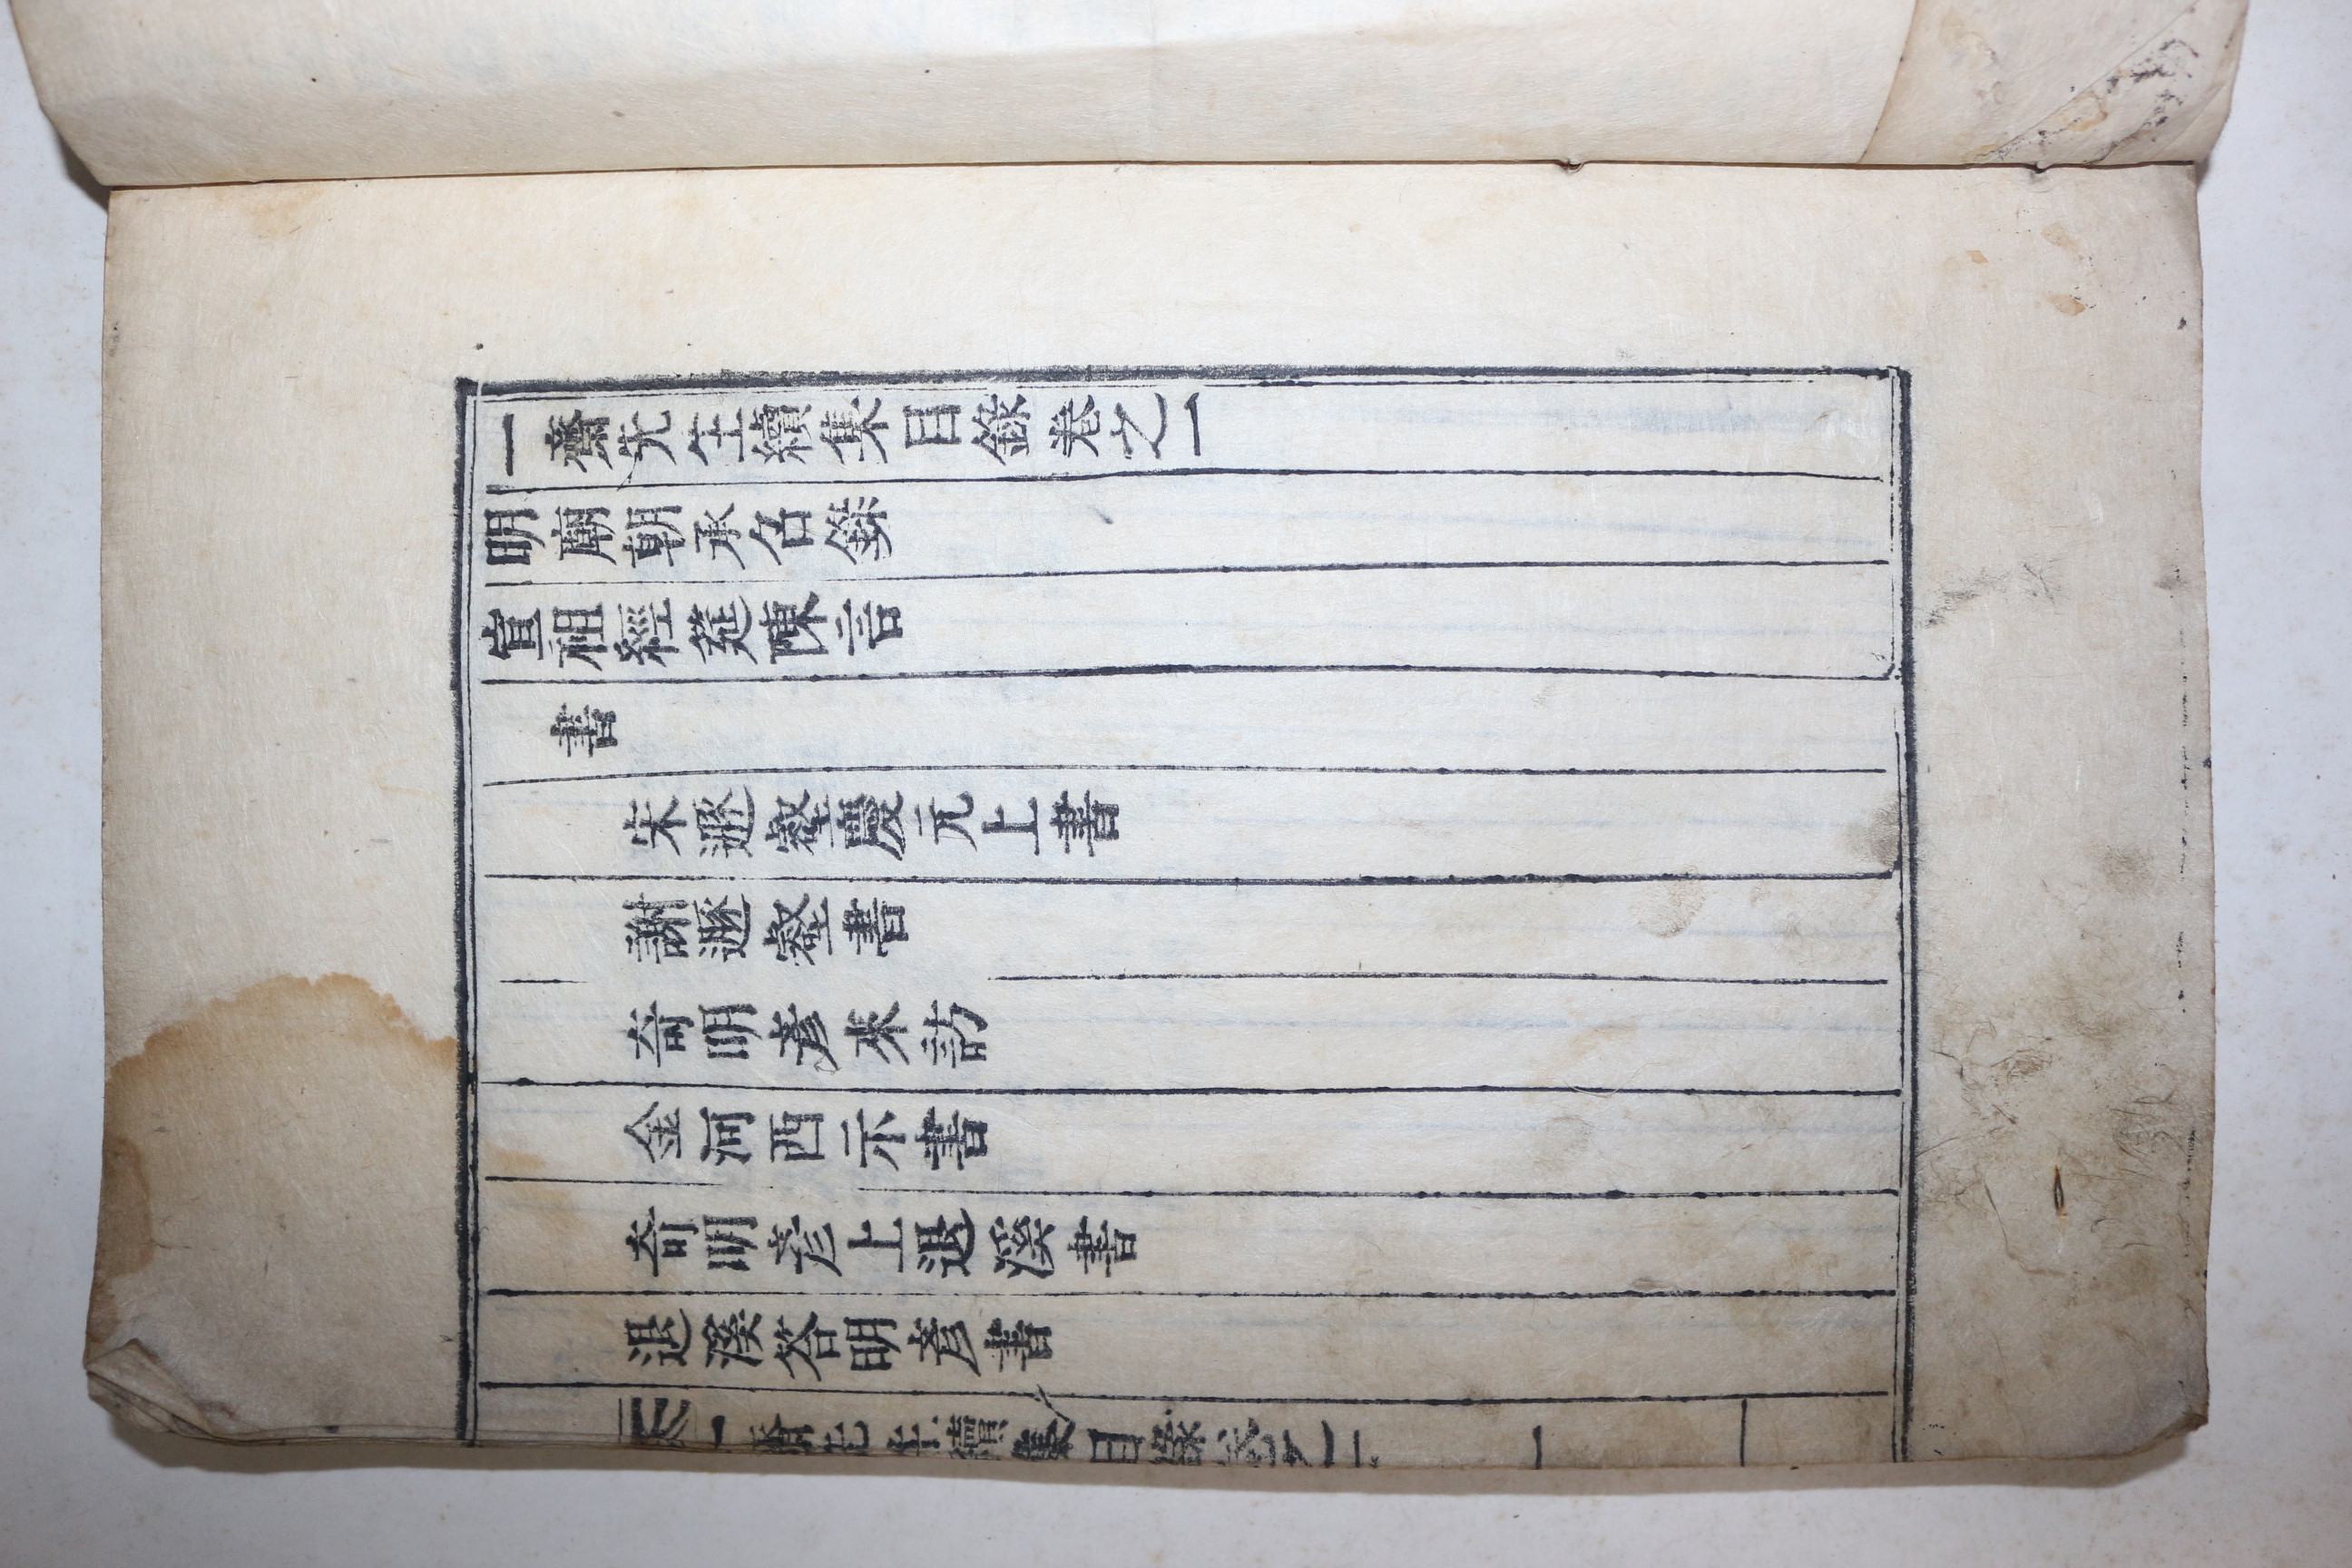 一齋先生續集目錄卷之一
明廟朝承召錄
宣祖經筵陳言
書
宋遯壑慶元上書
謝遯壑書
奇明彦來訪
金河西示書
奇明彦上退溪書
退溪答明彦書
一齋先生續集目錄卷之一　一